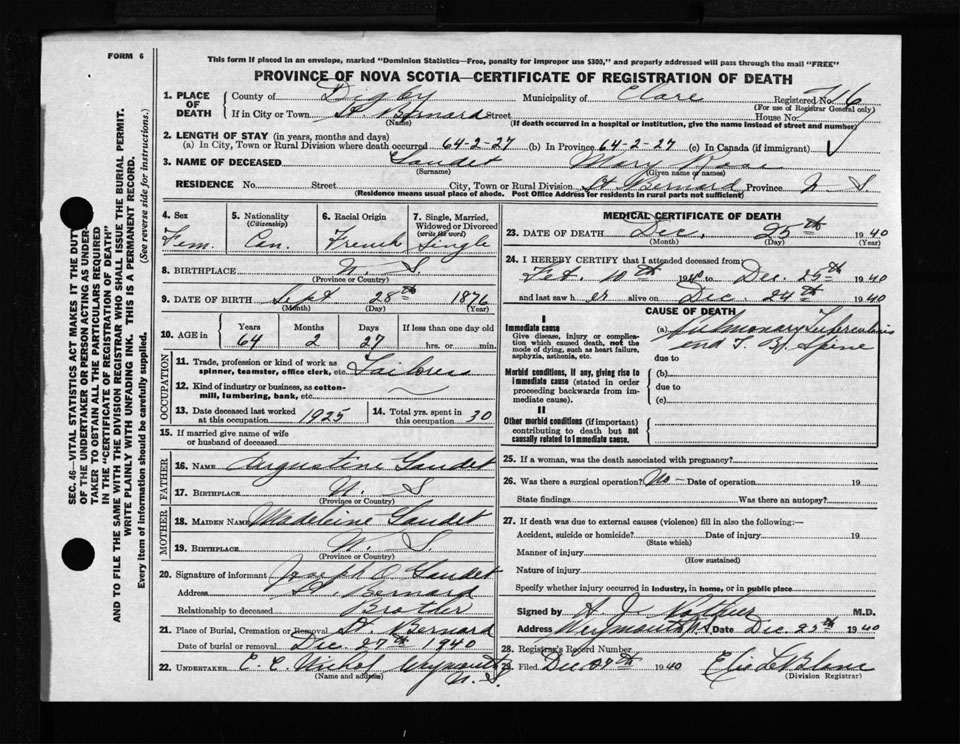 FORM 6
This form if placed in an envelope, marked "Dominion Statistics—Free, penalty for improper use $300," and properly addressed will pass through the mail "FREE"
PROVINCE OF NOVA SCOTIA—CERTIFICATE OF REGISTRATION OF DEATH
SEC. 46—VITAL STATISTICS ACT MAKES IT THE DUTY
OF THE UNDERTAKER OR PERSON ACTING AS UNDER-
TAKER TO OBTAIN ALL THE PARTICULARS REQUIRED
IN THE "CERTIFICATE OF REGISTRATION OF DEATH"
AND TO FILE THE SAME WITH THE DIVISION REGISTRAR WHO SHALL ISSUE THE BURIAL PERMIT.
WRITE PLAINLY WITH UNFADING INK. THIS IS A PERMANENT RECORD.
Every item of information should be carefully supplied. (See reverse side for instructions.)
1. PLACE OF DEATH
County of Digby Municipality of Clare Registered No. 716
(For use of Registrar General only)
If in City or Town St Bernard Street House No.
(Name) (If death occurred in a hospital or institution, give the name instead of street and number)
2. LENGTH OF STAY (in years, months and days)
(a) In City, Town or Rural Division where death occurred 64-2-27 (b) In Province 64-2-27 (c) In Canada (if immigrant) ✓
3. NAME OF DECEASED Gaudet Mary Rose
(Surname) (Given name or names)
RESIDENCE No. Street City, Town or Rural Division St Bernard Province N S
(Residence means usual place of abode. Post Office Address for residents in rural parts not sufficient)
4. Sex
Fem.
5. Nationality
(Citizenship)
Can.
6. Racial Origin
French
7. Single, Married,
Widowed or Divorced
(write the word)
Single
8. BIRTHPLACE N. S
(Province or Country)
9. DATE OF BIRTH Sept 28th 1876
(Month) (Day) (Year)
10. AGE in
Years Months Days If less than one day old
64 2 27 hrs. or min.
OCCUPATION
11. Trade, profession or kind of work as
spinner, teamster, office clerk, etc. Tailoress
12. Kind of industry or business, as cotton-
mill, lumbering, bank, etc.
13. Date deceased last worked
at this occupation 1925
14. Total yrs. spent in
this occupation 30
15. If married give name of wife
or husband of deceased
FATHER
16. NAME Augustine Gaudet
17. BIRTHPLACE N. S
(Province or Country)
MOTHER
18. MAIDEN NAME Madeleine Gaudet
19. BIRTHPLACE N. S.
(Province or Country)
20. Signature of informant Joseph O. Gaudet
Address St. Bernard
Relationship to deceased Brother
21. Place of Burial, Cremation or Removal St. Bernard
Date of burial or removal Dec. 27th 1940
22. UNDERTAKER C. C. Nichol Weymouth
N. S.
(Name and address)
MEDICAL CERTIFICATE OF DEATH
23. DATE OF DEATH Dec. 25th 1940
(Month) (Day) (Year)
24. I HEREBY CERTIFY that I attended deceased from
Fet. 10th 1940 to Dec. 25th 1940
and last saw her alive on Dec. 24th 1940
CAUSE OF DEATH
I
Immediate cause
Give disease, injury or complica-
tion which caused death, not the
mode of dying, such as heart failure,
asphyxia, asthenia, etc.
(a) Pulmonary Tuberculosis
and T. B. Spine
due to
Morbid conditions, if any, giving rise to
immediate cause (stated in order
proceeding backwards from im-
mediate cause).
(b)
due to
(c)
II
Other morbid conditions (if important)
contributing to death but not
causally related to immediate cause.
25. If a woman, was the death associated with pregnancy?
26. Was there a surgical operation? No - Date of operation 19
State findings Was there an autopsy?
27. If death was due to external causes (violence) fill in also the following:—
Accident, suicide or homicide? Date of injury 19
(State which)
Manner of injury
(How sustained)
Nature of injury
Specify whether injury occurred in industry, in home, or in public place
Signed by A. J. M.D.
Address Weymouth N.S Date Dec. 25th 1940
28. Registrar's Record Number
29. Filed Dec 27th 1940 Elie LeBlanc
(Division Registrar)